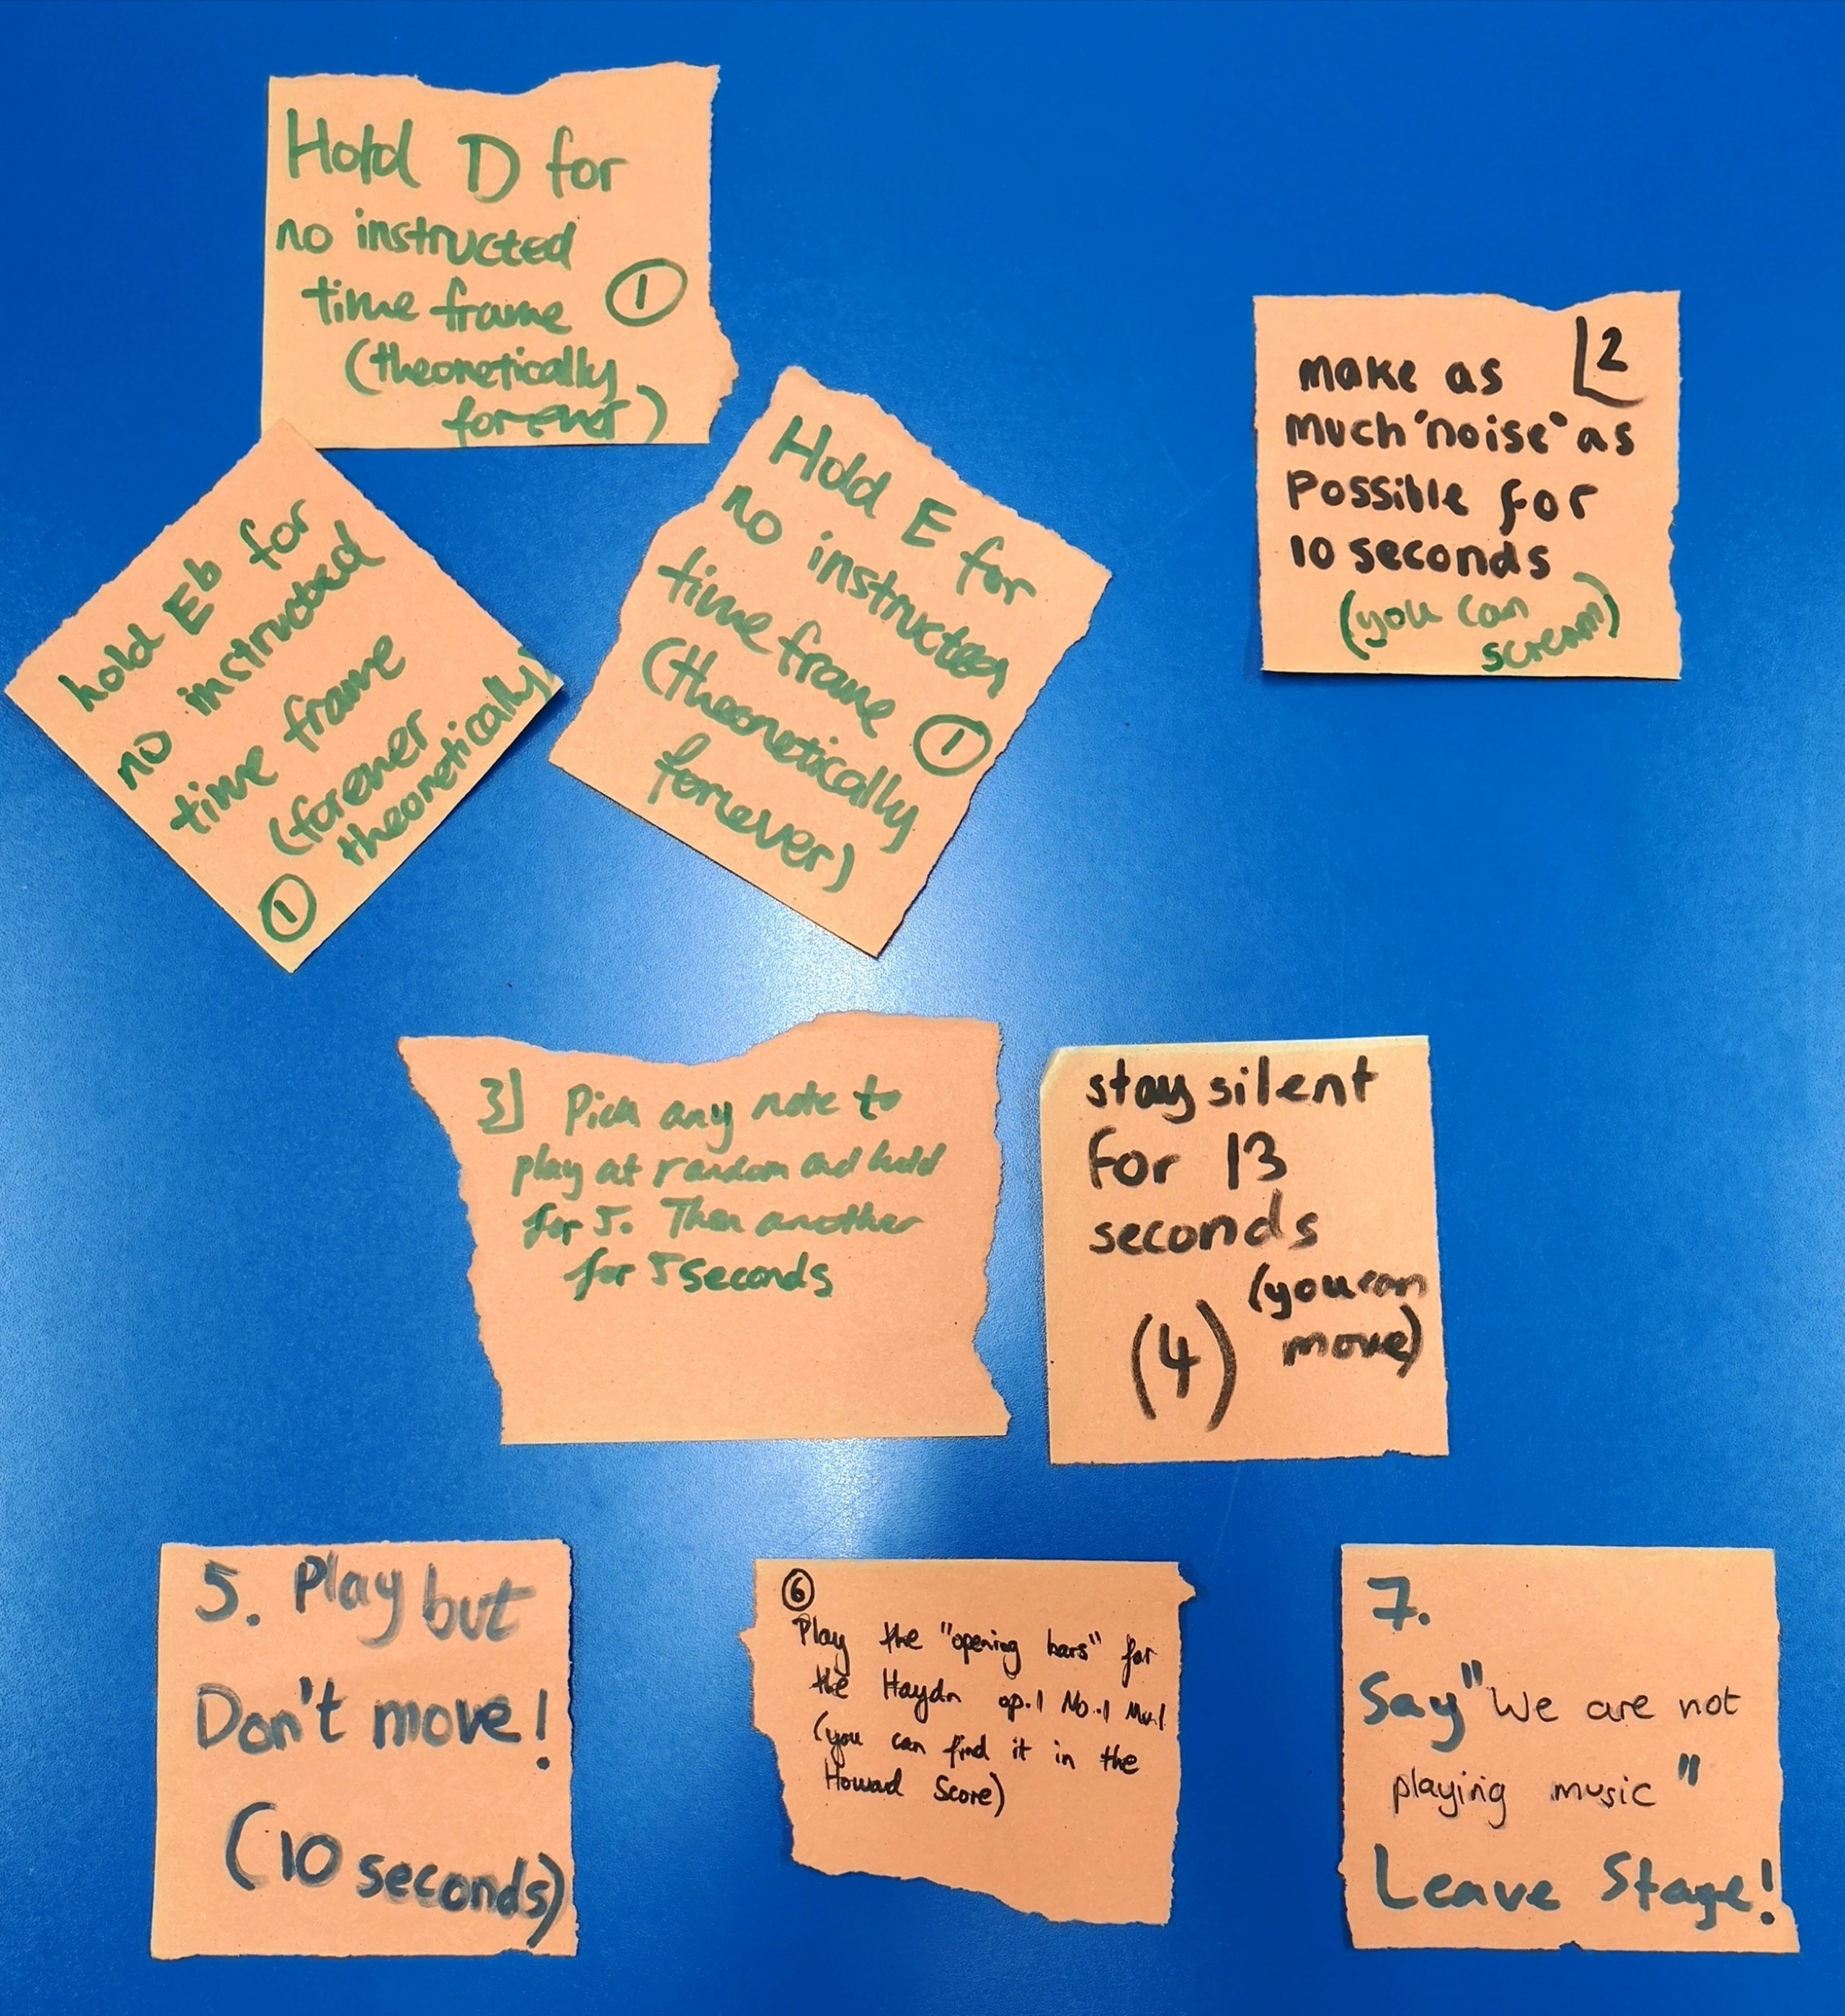 Hold D for
no instructed
time frame ①
(theoretically
forever)
hold Eb for
no instructed
time frame
(forever
theoretically)
①
Hold E for
no instructed
time frame ①
(theoretically
forever)
2
make as
much 'noise' as
Possible for
10 seconds
(you can
scream)
3] Pick any note to
play at random and hold
for 5. Then another
for 5 seconds
stay silent
for 13
seconds
(you can
move)
(4)
5. Play but
Don't move!
(10 seconds)
⑥
Play the "opening bars" for
the Haydn op.1 No.1
(you can find it in the
Howard Score)
7.
Say "We are not
playing music"
Leave Stage!